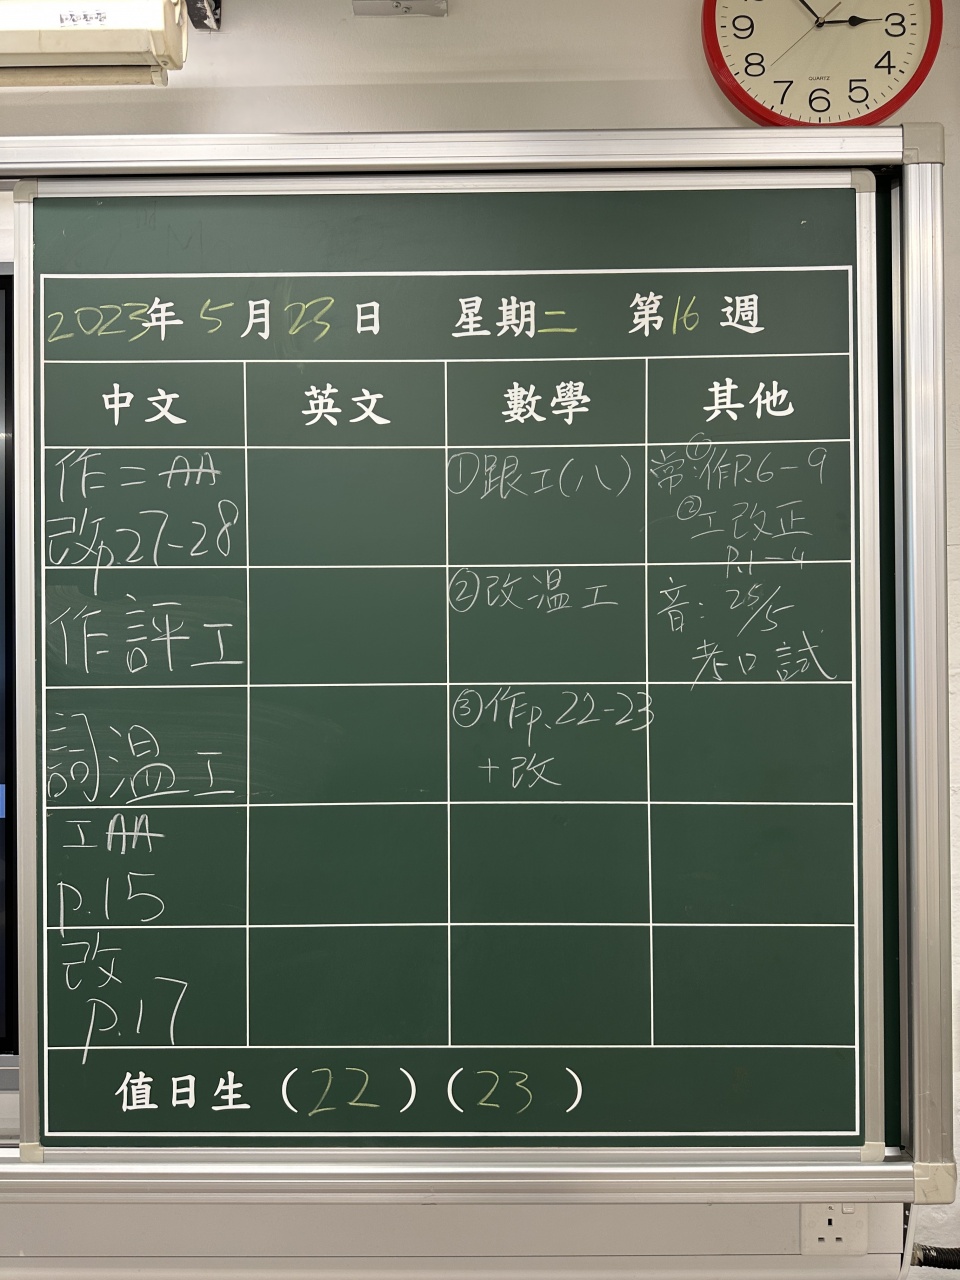 9
8
7
6
5
4
3
QUARTZ
2023年 5月 23日 星期二 第16週
中文 英文 數學 其他
作二AA
改p.27-28
作評工
詞溫工
工AA
p.15
改
p.17
①跟工(八)
②改溫工
③作p.22-23
+改
常:①作P.6-9
②工改正
P.1-4
音: 25/5
考口試
值日生 (22) (23)